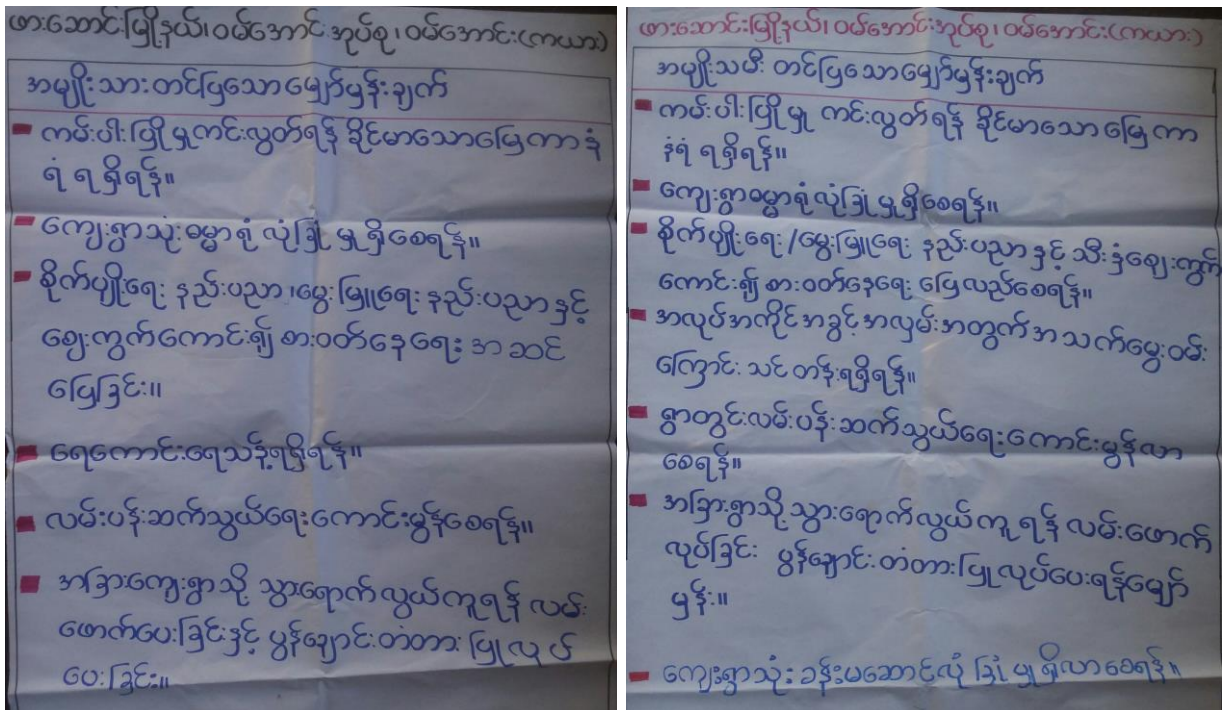 ဖားဆောင်းမြို့နယ်၊ ဝမ်အောင်အုပ်စု၊ ဝမ်အောင်း(ကယား)
အမျိုးသားတင်ပြသောမျှော်မှန်းချက်
ကမ်းပါးပြိုမှုကင်းလွတ်ရန် ခိုင်မာသောမြေကာနံ
ရံ ရရှိရန်။
ကျေးရွာသုံးဓမ္မာရုံ လုံခြုံမှုရှိစေရန်။
စိုက်ပျိုးရေး နည်းပညာ၊မွေးမြူရေး နည်းပညာနှင့်
ဈေးကွက်ကောင်း၍ စားဝတ်နေရေး အဆင်
ပြေခြင်း။
ရေကောင်းရေသန့်ရရှိရန်။
လမ်းပန်းဆက်သွယ်ရေးကောင်းမွန်စေရန်။
အခြားကျေးရွာသို့ သွားရောက်လွယ်ကူရန် လမ်း
ဖောက်ပေးခြင်းနှင့် ပွန်ချောင်းတံတား ပြုလုပ်
ပေးခြင်း။
ဖားဆောင်းမြို့နယ်၊ ဝမ်အောင်းအုပ်စု၊ ဝမ်အောင်း(ကယား)
အမျိုးသမီး တင်ပြသောမျှော်မှန်းချက်
ကမ်းပါးပြိုမှု ကင်းလွတ်ရန် ခိုင်မာသောမြေကာ
နံရံ ရရှိရန်။
ကျေးရွာဓမ္မာရုံလုံခြုံမှုရှိစေရန်။
စိုက်ပျိုးရေး/မွေးမြူရေး နည်းပညာနှင့် သီးနှံဈေးကွက်
ကောင်း၍ စားဝတ်နေရေး ပြေလည်စေရန်။
အလုပ်အကိုင်အခွင့်အလှမ်းအတွက်အသက်မွေးဝမ်း
ကြောင်း သင်တန်းရရှိရန်။
ရွာတွင်းလမ်းပန်းဆက်သွယ်ရေးကောင်းမွန်လာ
စေရန်။
အခြားရွာသို့သွားရောက်လွယ်ကူရန် လမ်းဖောက်
လုပ်ခြင်း ပွန်ချောင်းတံတားပြုလုပ်ပေးရန်မျှော်
မှန်း။
ကျေးရွာသုံးခန်းမဆောင်လုံခြုံမှုရှိလာစေရန်။